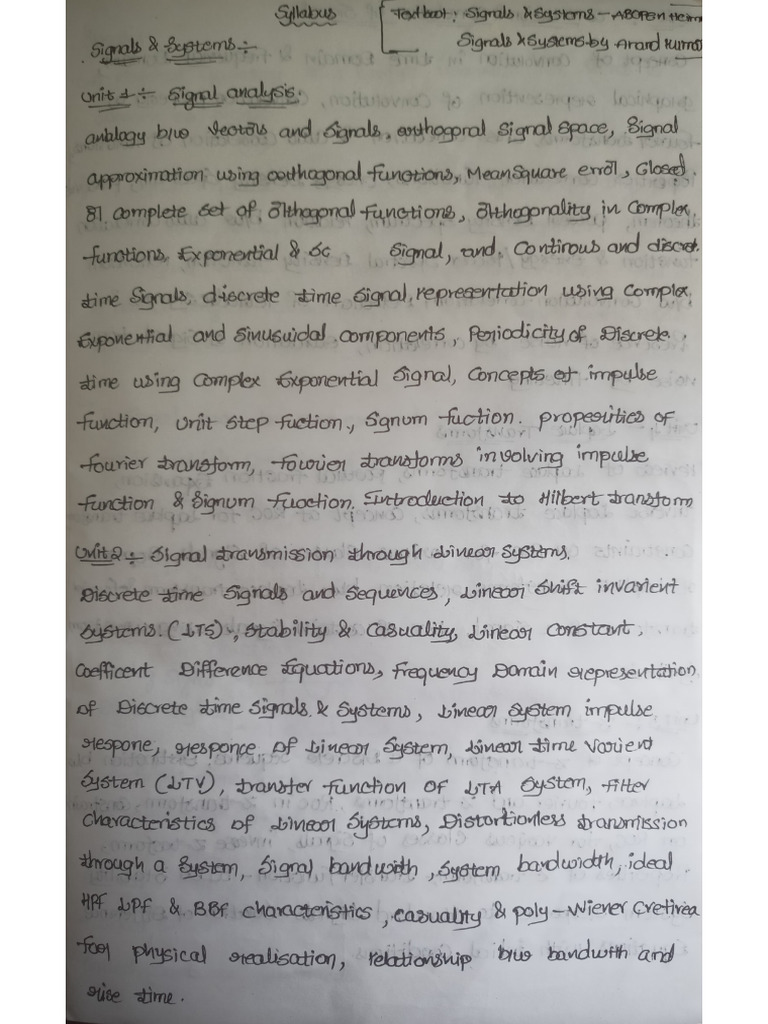 Syllabus
Textboot: Signals & Systems - A
Signals & Systems by Anand Kumar
Signals & Systems:-
Unit 1:- Signal analysis.
anology b/w Vectors and Signals, orthogoral Signal Space, Signal
approximation using orthogonal functions, Mean Square error, Closed
or complete set of orthogonal functions, orthogonality in Complex
functions, Exponential & Sc Signal, and Continous and discret.
time Signals, discrete time Signal, representation using Complex
Exponential and Sinusuidal components, Periodicity of Discrete
time using Complex Exponential Signal, Concepts of impulse
function, unit Step fuction, Signum fuction. properities of
fourier transform, fourier transforms involving impulse
function & Signum Function. Introduction to Hilbert transform
Unit 2:- Signal transmission through Linear Systems.
Discrete time Signals and Sequences, Linear Shift invarient
Systems. (LTS), Stability & Casuality, Linear Constant
Coefficent Difference Equations, frequency Domain representation
of Discrete time Signals & Systems, Linear System impulse
respone, responce of Linear System, Linear time Varient
System (LTV), transfer function of LTA System, filter
Characteristics of Linear Systems, Distortionless transmission
through a System, Signal bandwidth, System bandwidth, ideal
HPf LPf & BBf characteristics, Casuality & poly-Wiener Cretirea
for physical realisation, relationship b/w bandwith and
rise time.